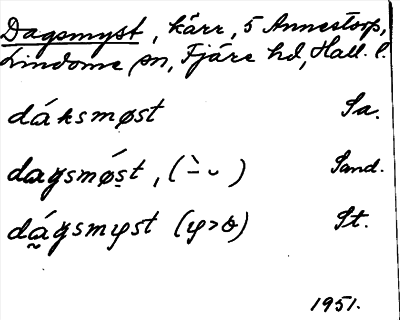 Dagsmyst, kärr, 5 Annestorp,
Lindome sn, Fjäre hd, Hall. l.
dáksmøst Sa.
dagsmǿst, (–̀ ⏑) Sand.
dágsmyst (y>ö) St.
1951.